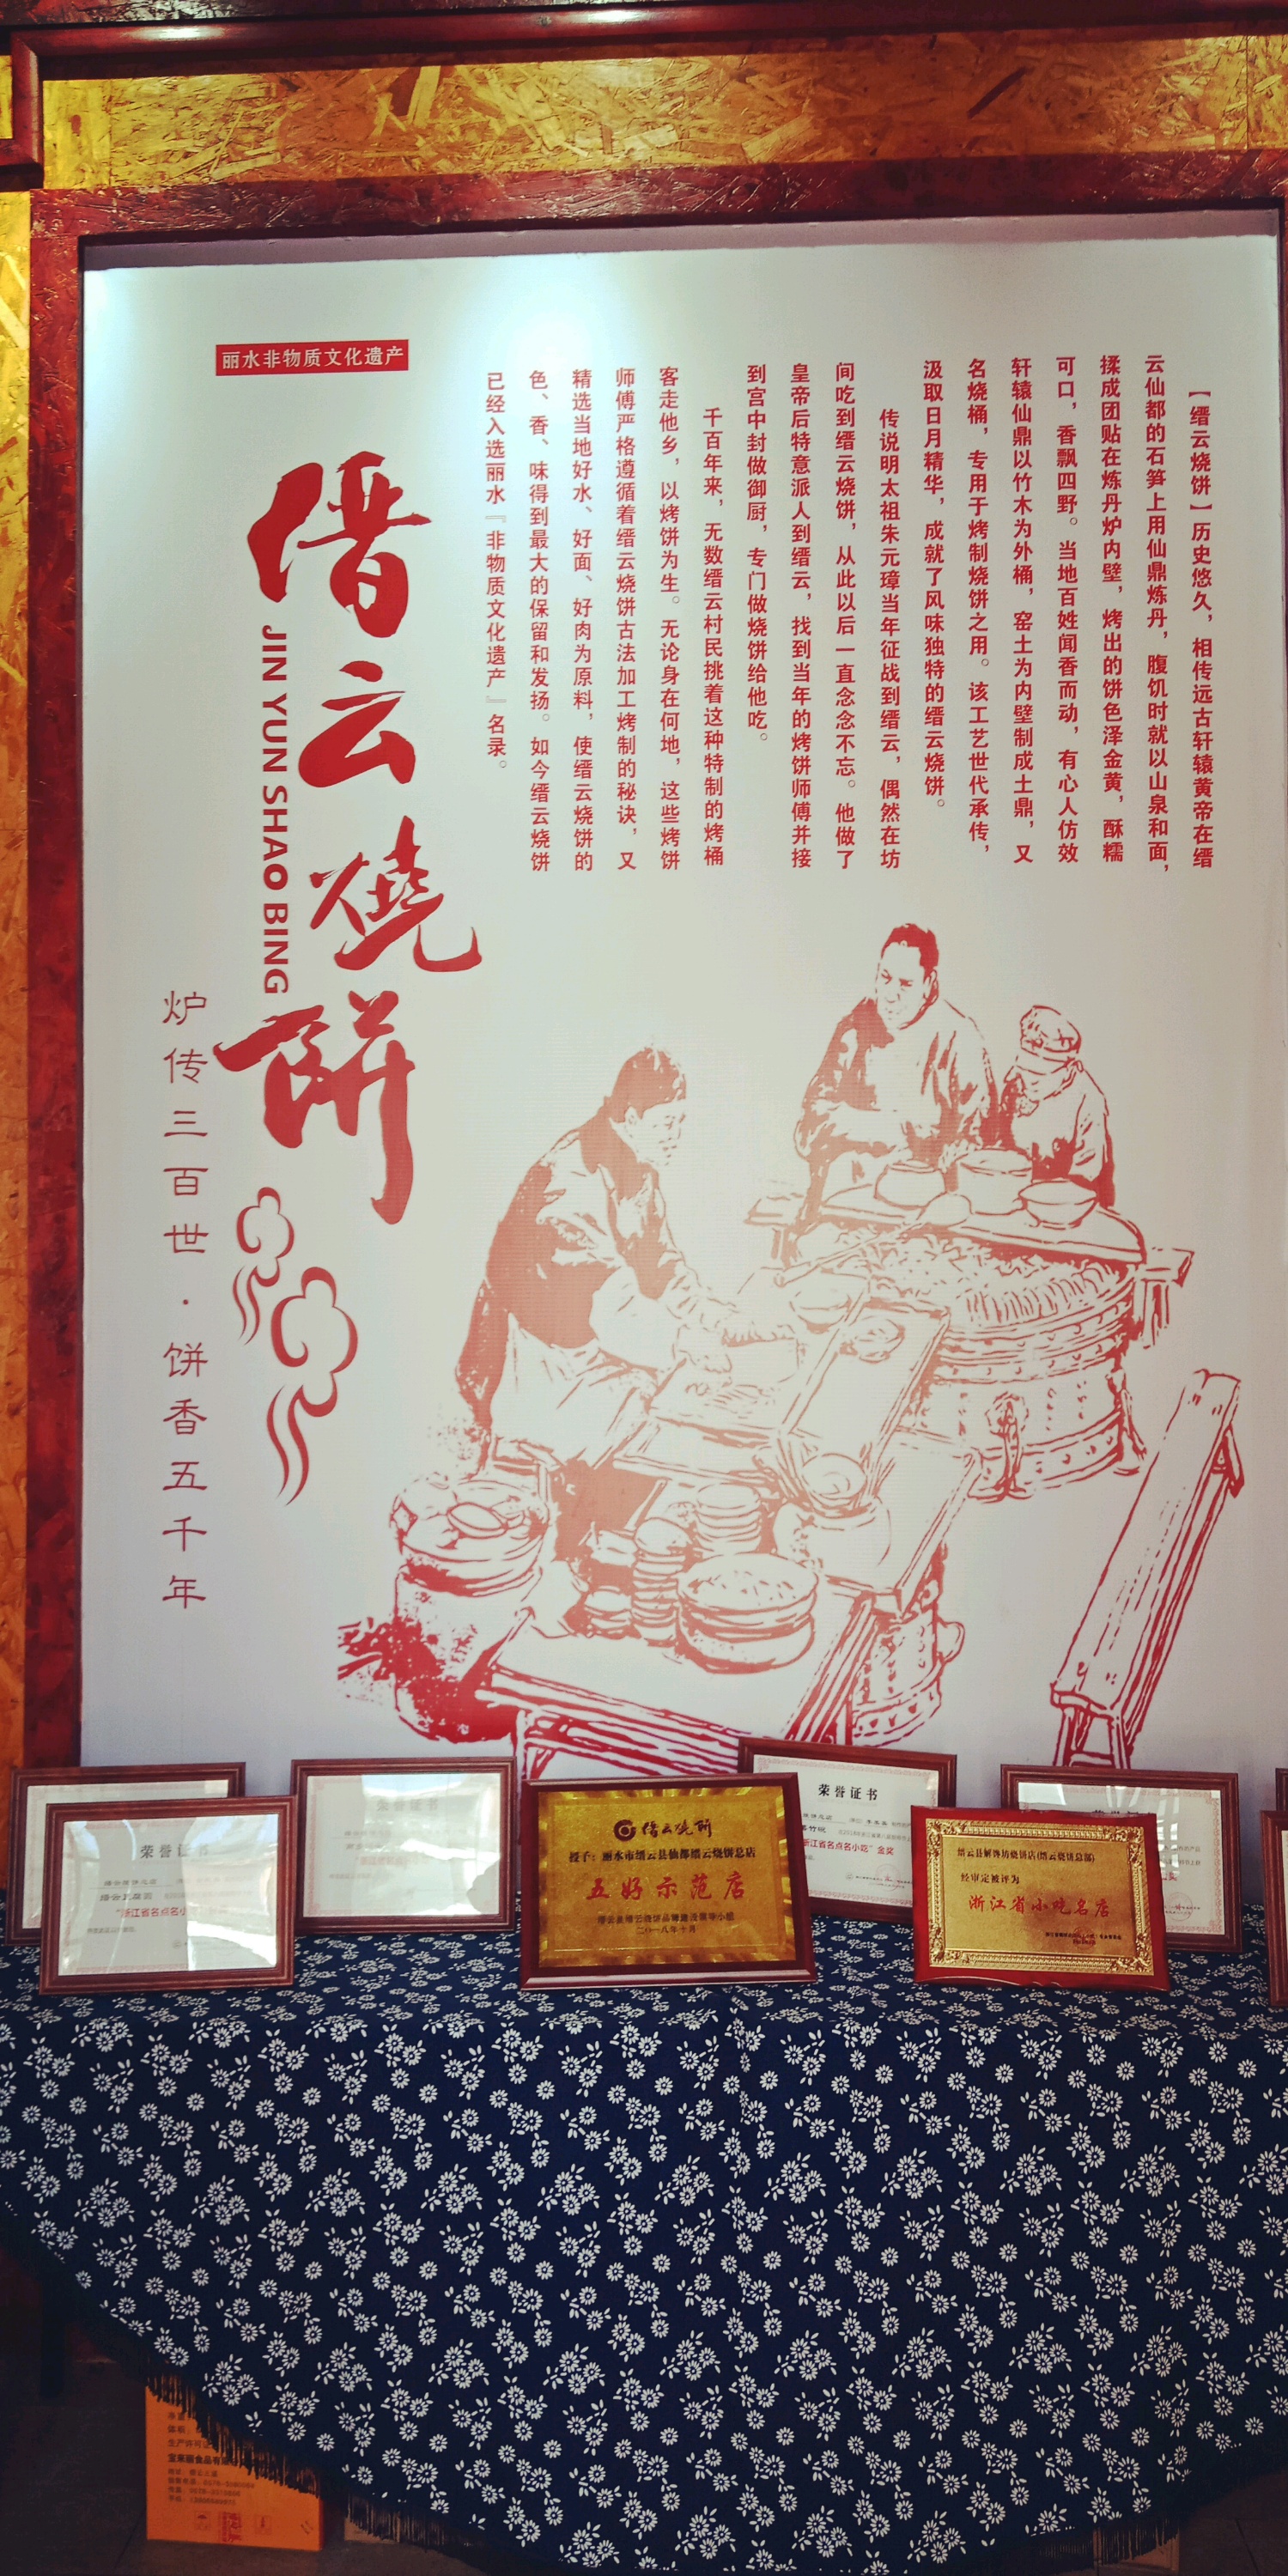 丽水非物质文化遗产
缙云烧饼
JIN YUN SHAO BING
炉传三百世·饼香五千年
【缙云烧饼】历史悠久，相传远古轩辕黄帝在缙
云仙都的石笋上用仙鼎炼丹，腹饥时就以山泉和面，
揉成团贴在炼丹炉内壁，烤出的饼色泽金黄，酥糯
可口，香飘四野。当地百姓闻香而动，有心人仿效
轩辕仙鼎以竹木为外桶，窑土为内壁制成土鼎，又
名烧桶，专用于烤制烧饼之用。该工艺世代承传，
汲取日月精华，成就了风味独特的缙云烧饼。
传说明太祖朱元璋当年征战到缙云，偶然在坊
间吃到缙云烧饼，从此以后一直念念不忘。他做了
皇帝后特意派人到缙云，找到当年的烤饼师傅并接
到宫中封做御厨，专门做烧饼给他吃。
千百年来，无数缙云村民挑着这种特制的烤桶
客走他乡，以烤饼为生。无论身在何地，这些烤饼
师傅严格遵循着缙云烧饼古法加工烤制的秘诀，又
精选当地好水、好面、好肉为原料，使缙云烧饼的
色、香、味得到最大的保留和发扬。如今缙云烧饼
已经入选丽水『非物质文化遗产』名录。
荣誉证书
缙云烧饼
授予：丽水市缙云县仙都缙云烧饼总店
五好示范店
二〇一八年十月
荣誉证书
浙江省名点名小吃”金奖
缙云县解馋坊烧饼店(缙云烧饼总部)
经审定被评为
浙江省小吃名店
生产许可证